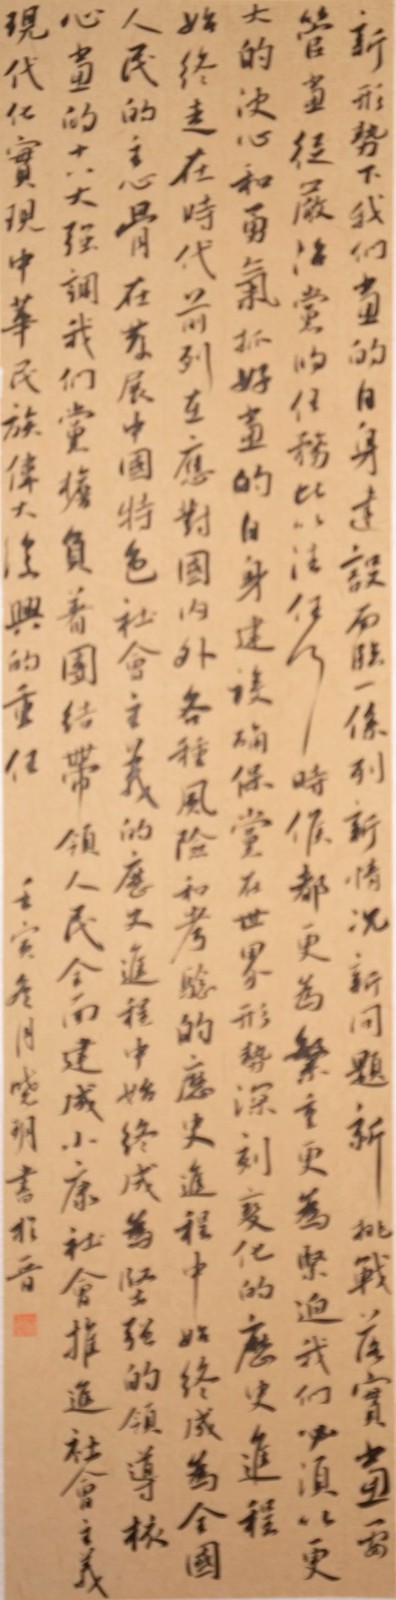 新形勢下我们畫的自身建設面臨一係列新情况新问題新挑戰落實畫要
管畫從嚴治黨的任務比以往任何時候都更為繁重更為緊迫我们必須以更
大的决心和勇氣抓好畫的自身建設确保黨在世界形勢深刻變化的歷史進程
始終走在時代前列在應對國内外各種風险和考驗的歷史進程中始終成為全國
人民的主心骨在發展中國特色社會主義的歷史進程中始終成為堅强的領導核
心畫的十八大强調我们黨擔負着團结帶領人民全面建成小康社會推進社會主義
現代化實現中華民族偉大復興的重任
壬寅冬月曉明書於晉